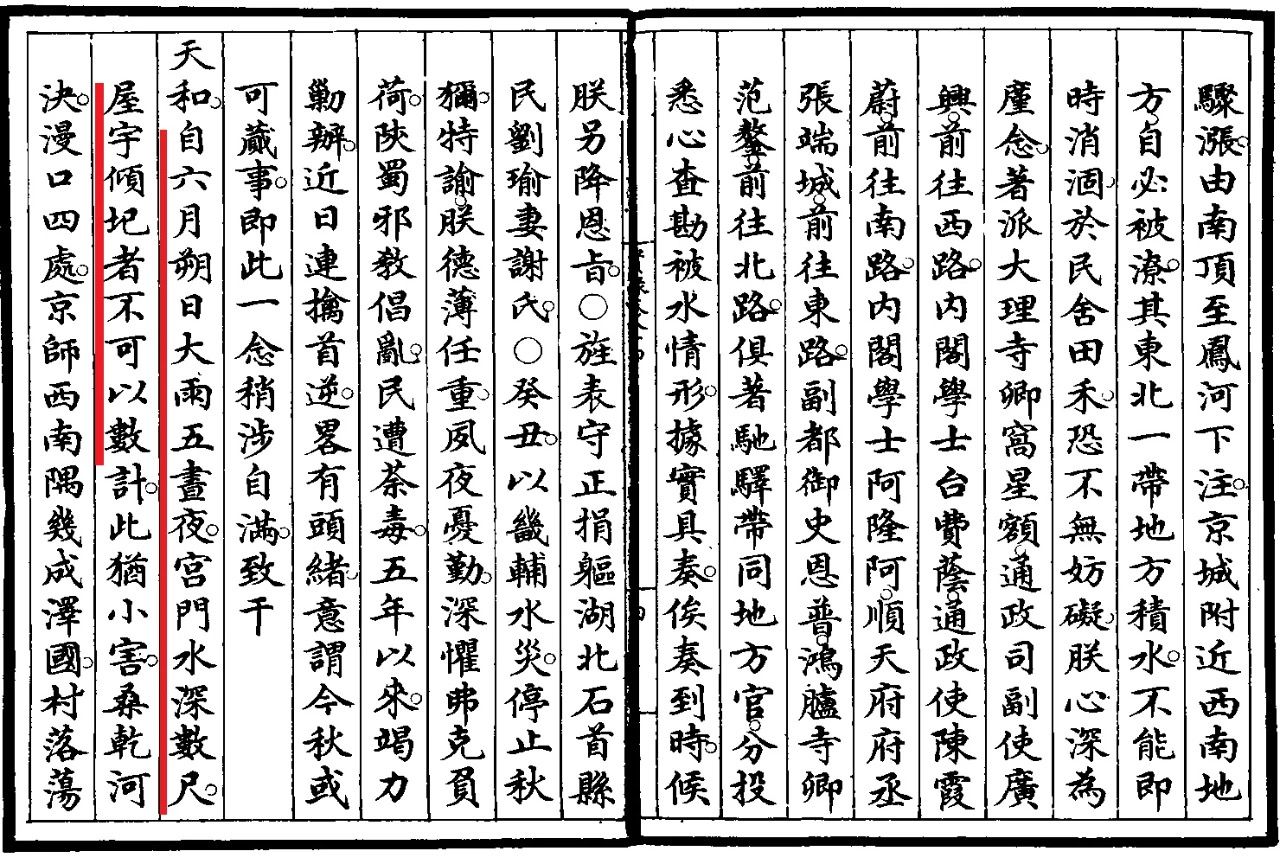 驟漲。由南頂至鳳河下注。京城附近西南地
方。自必被潦。其東北一帶地方積水。不能即
時消涸。於民舍田禾。恐不無妨礙。朕心深為
廑念。著派大理寺卿窩星額。通政司副使廣
興。前往西路。內閣學士台費蔭。通政使陳霞
蔚。前往南路。內閣學士阿隆阿。順天府府丞
張端城。前往東路。副都御史恩普。鴻臚寺卿
范鏊。前往北路。俱著馳驛帶同地方官。分投
悉心查勘被水情形。據實具奏。俟奏到時。候
朕另降恩旨。○旌表守正捐軀湖北石首縣
民劉瑜妻謝氏。○癸丑。以畿輔水災。停止秋
獮。特諭。朕德薄任重。夙夜憂勤。深懼弗克負
荷。陝蜀邪教倡亂。民遭荼毒。五年以來。竭力
勦辦。近日連擒首逆。畧有頭緒。意謂今秋或
可蕆事。即此一念稍涉自滿。致干
天和。自六月朔日大雨五晝夜。宮門水深數尺。
屋宇傾圮者不可以數計。此猶小害。桑乾河
決漫口四處。京師西南隅幾成澤國。村落蕩